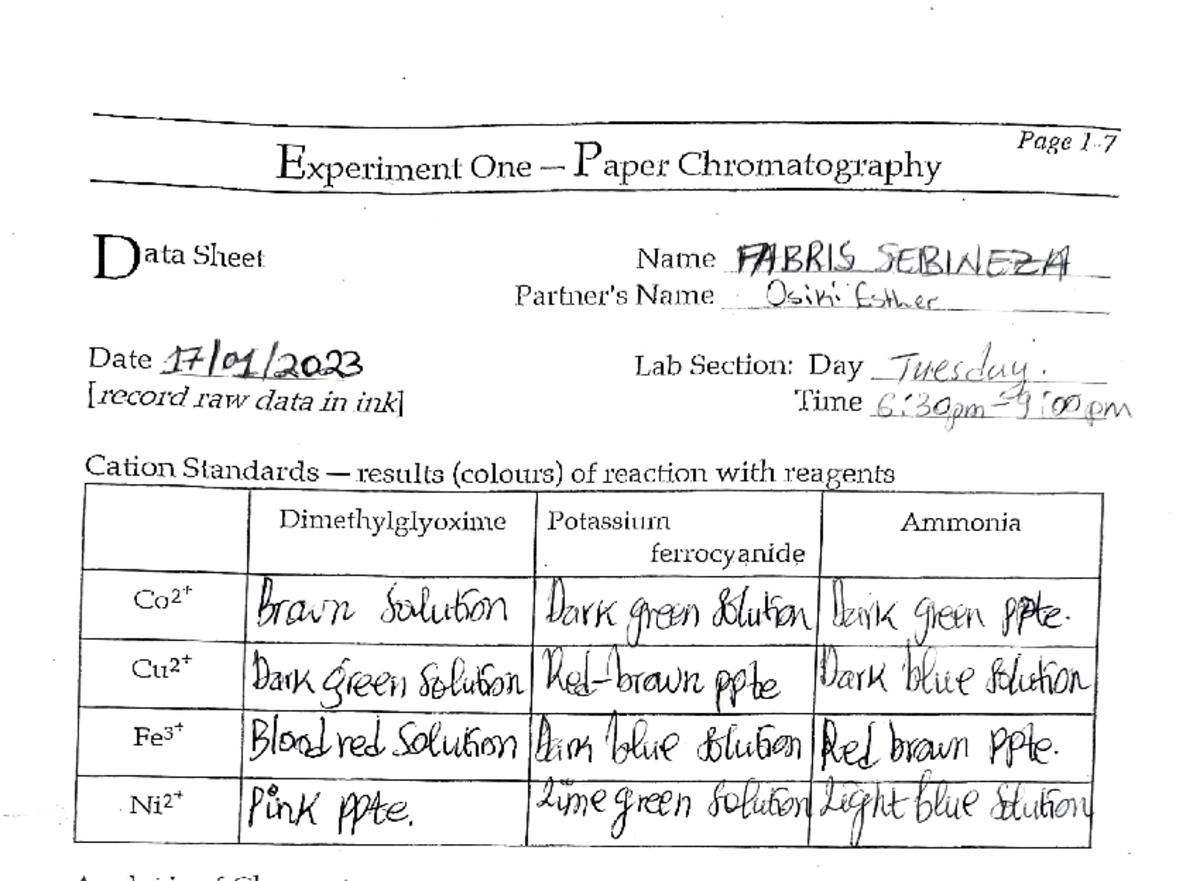 Page 1-7
Experiment One — Paper Chromatography
Data Sheet
Name FABRIS SEBINEZA
Partner's Name Osiki Esther
Date 17/01/2023
Lab Section: Day Tuesday.
[record raw data in ink]
Time 6:30pm - 9:00pm
Cation Standards — results (colours) of reaction with reagents
Dimethylglyoxime Potassium ferrocyanide Ammonia
Co²⁺ Brown Solution Dark green solution Dark green ppte.
Cu²⁺ Dark green solution Red-brown ppte Dark blue solution
Fe³⁺ Blood red Solution Dark blue solution Red brown ppte.
Ni²⁺ Pink ppte. Lime green solution Light blue solution